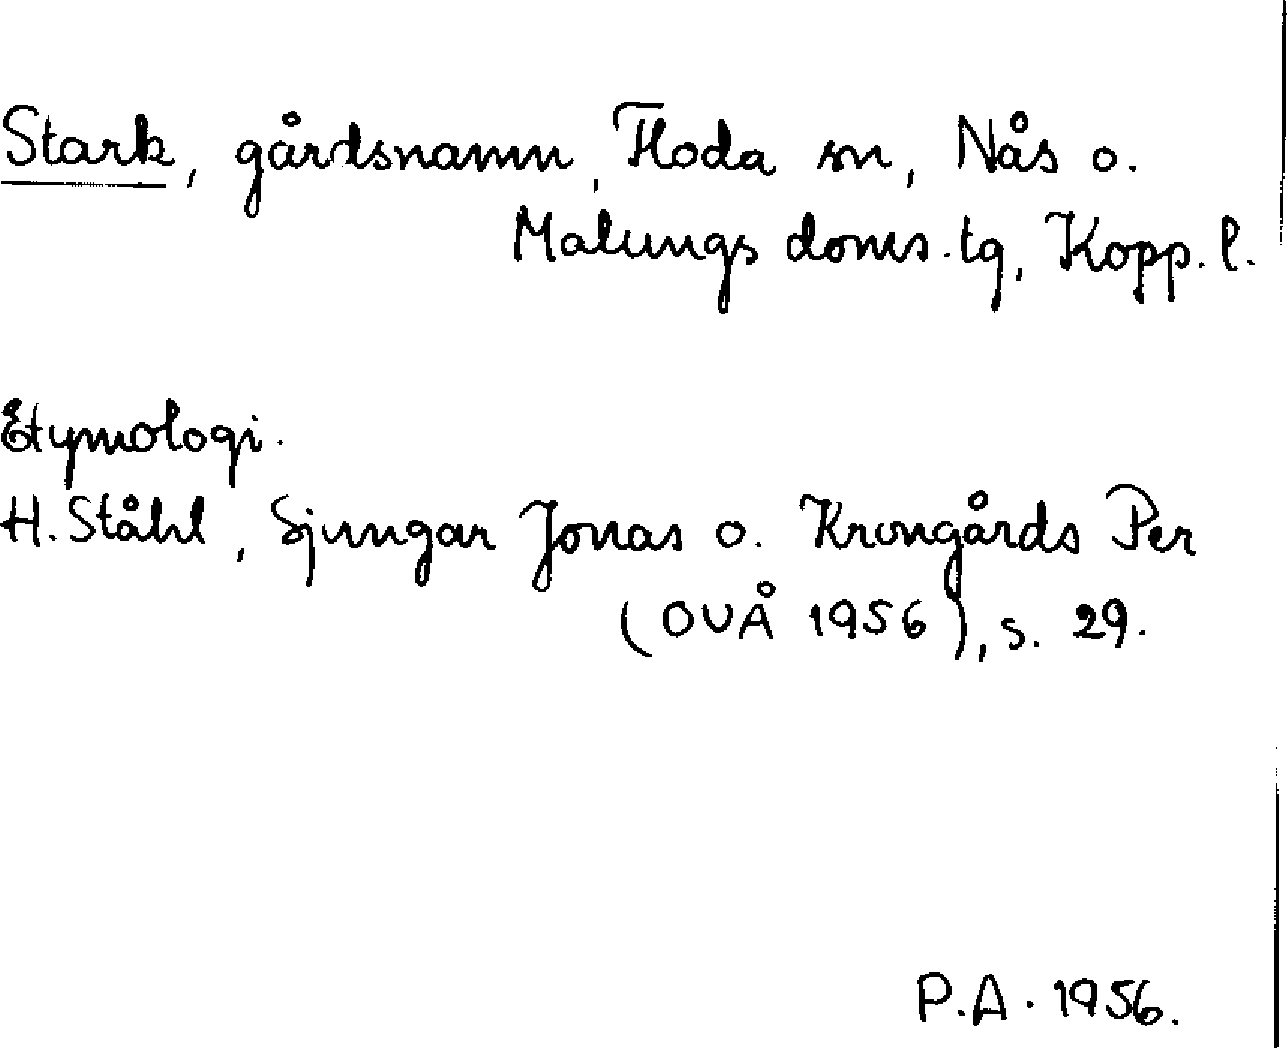 Stark, gårdsnamn, Floda sn, Nås o.
Malungs doms.tg, Kopp. l.
Etymologi.
H. Ståhl, Sjungar Jonas o. Krongårds Per
(OUÅ 1956), s. 29.
P.A. 1956.